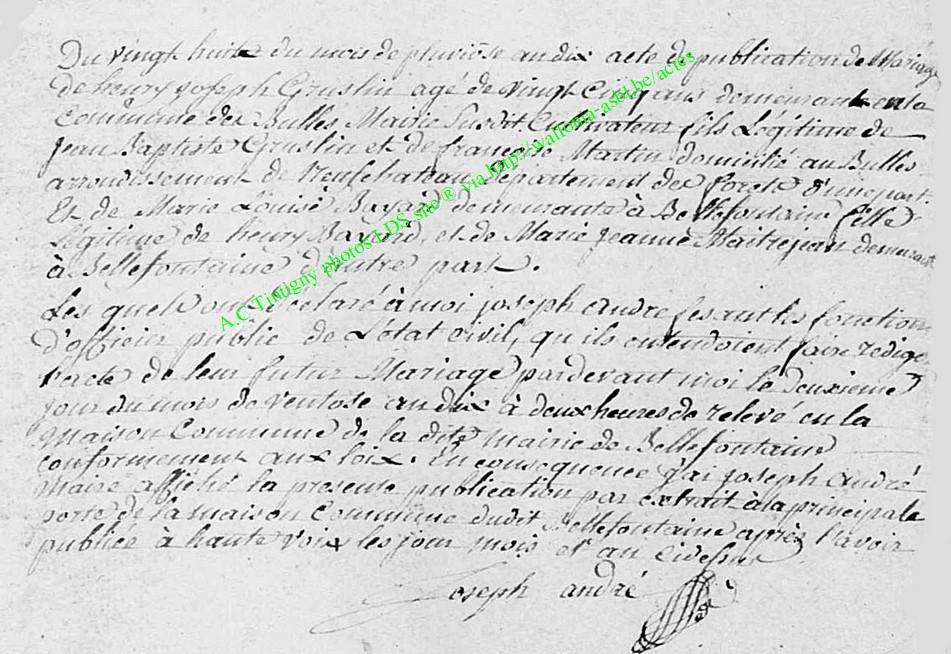 Du vingt huit du mois de pluviôse an dix acte de publication de Mariage
de henry joseph Gruslin agé de vingt cinq ans demeurant en la
Commune des Bulles Mairie Susdit, Cultivateur fils Légitime de
jean Baptiste Gruslin et de françoise Martin domicilié au Bulles
arrondissement de Neufchateau Departement des forets d'une part.
Et de Marie Louise Bayard, demeurante à Bellefontaine fille
Légitime de henry Bayard, et de Marie jeanne Maitrejean demeurant
à Bellefontaine d'autre part.
Les quels ont déclaré à moi joseph andre fesant les fonctions
d'officier public de L'état Civil, qu'ils entendoient faire rediger
l'acte de leur futur Mariage pardevant moi le deuxieme
jour du mois de ventose an dix à deux heures de relevé en la
maison Commune de la dite mairie de Bellefontaine
conformement aux loix. En consequence j'ai joseph andré
maire affiché la presente publication par extrait à la principale
porte de la maison Commune dudit Bellefontaine après l'avoir
publiée à haute voix les jour mois et an
joseph andré
A.C Tintigny photos LDS site ® via http://wallonia-asbl.be/actes